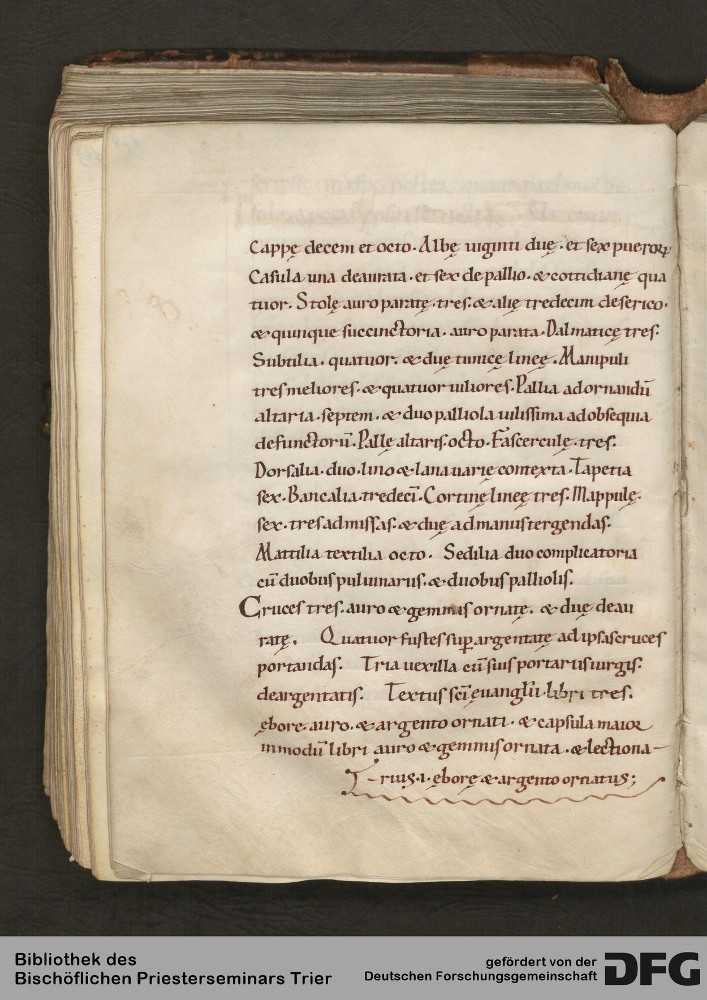 Cappę decem et octo. Albę uiginti duę. et sex pueroꝝ
Casula una deaurata. et sex de pallio. & cottidianę qua
tuor. Stolę auro paratę. tres. & alię tredecim de serico.
& quinque succinctoria. auro parata. Dalmaticę tres.
Subtilia. quatuor. & duę tunicę lineę. Manipuli
tres meliores. & quatuor uiliores. Pallia ad ornandū
altaria. septem. & duo palliola uilissima ad obsequia
defunctorū. Pallę altaris. octo. Fasterculę. tres.
Dorsalia. duo. lino & lana uarię contexta. Tapetia
sex. Bancalia. tredecī. Cortinę lineę tres. Mappulę.
sex. tres ad missas. & duę ad manus tergendas.
Mattilia textilia octo. Sedilia duo complicatoria
cū duobus puluinariis. & duobus palliolis.
Cruces tres. auro & gemmis ornatę. & duę deau
ratę. Quatuor fustes sup̱argentatę ad ipsas cruces
portandas. Tria uexilla cū suis portariis uirgis.
deargentatis. Textus sc̄i euanglīi. libri tres.
ębore. auro. & argento ornati. & capsula maior
in modū libri auro & gemmis ornata. & lectiona-
rius. i. ębore & argento ornatus;
Bibliothek des
Bischöflichen Priesterseminars Trier
gefördert von der
Deutschen Forschungsgemeinschaft
DFG